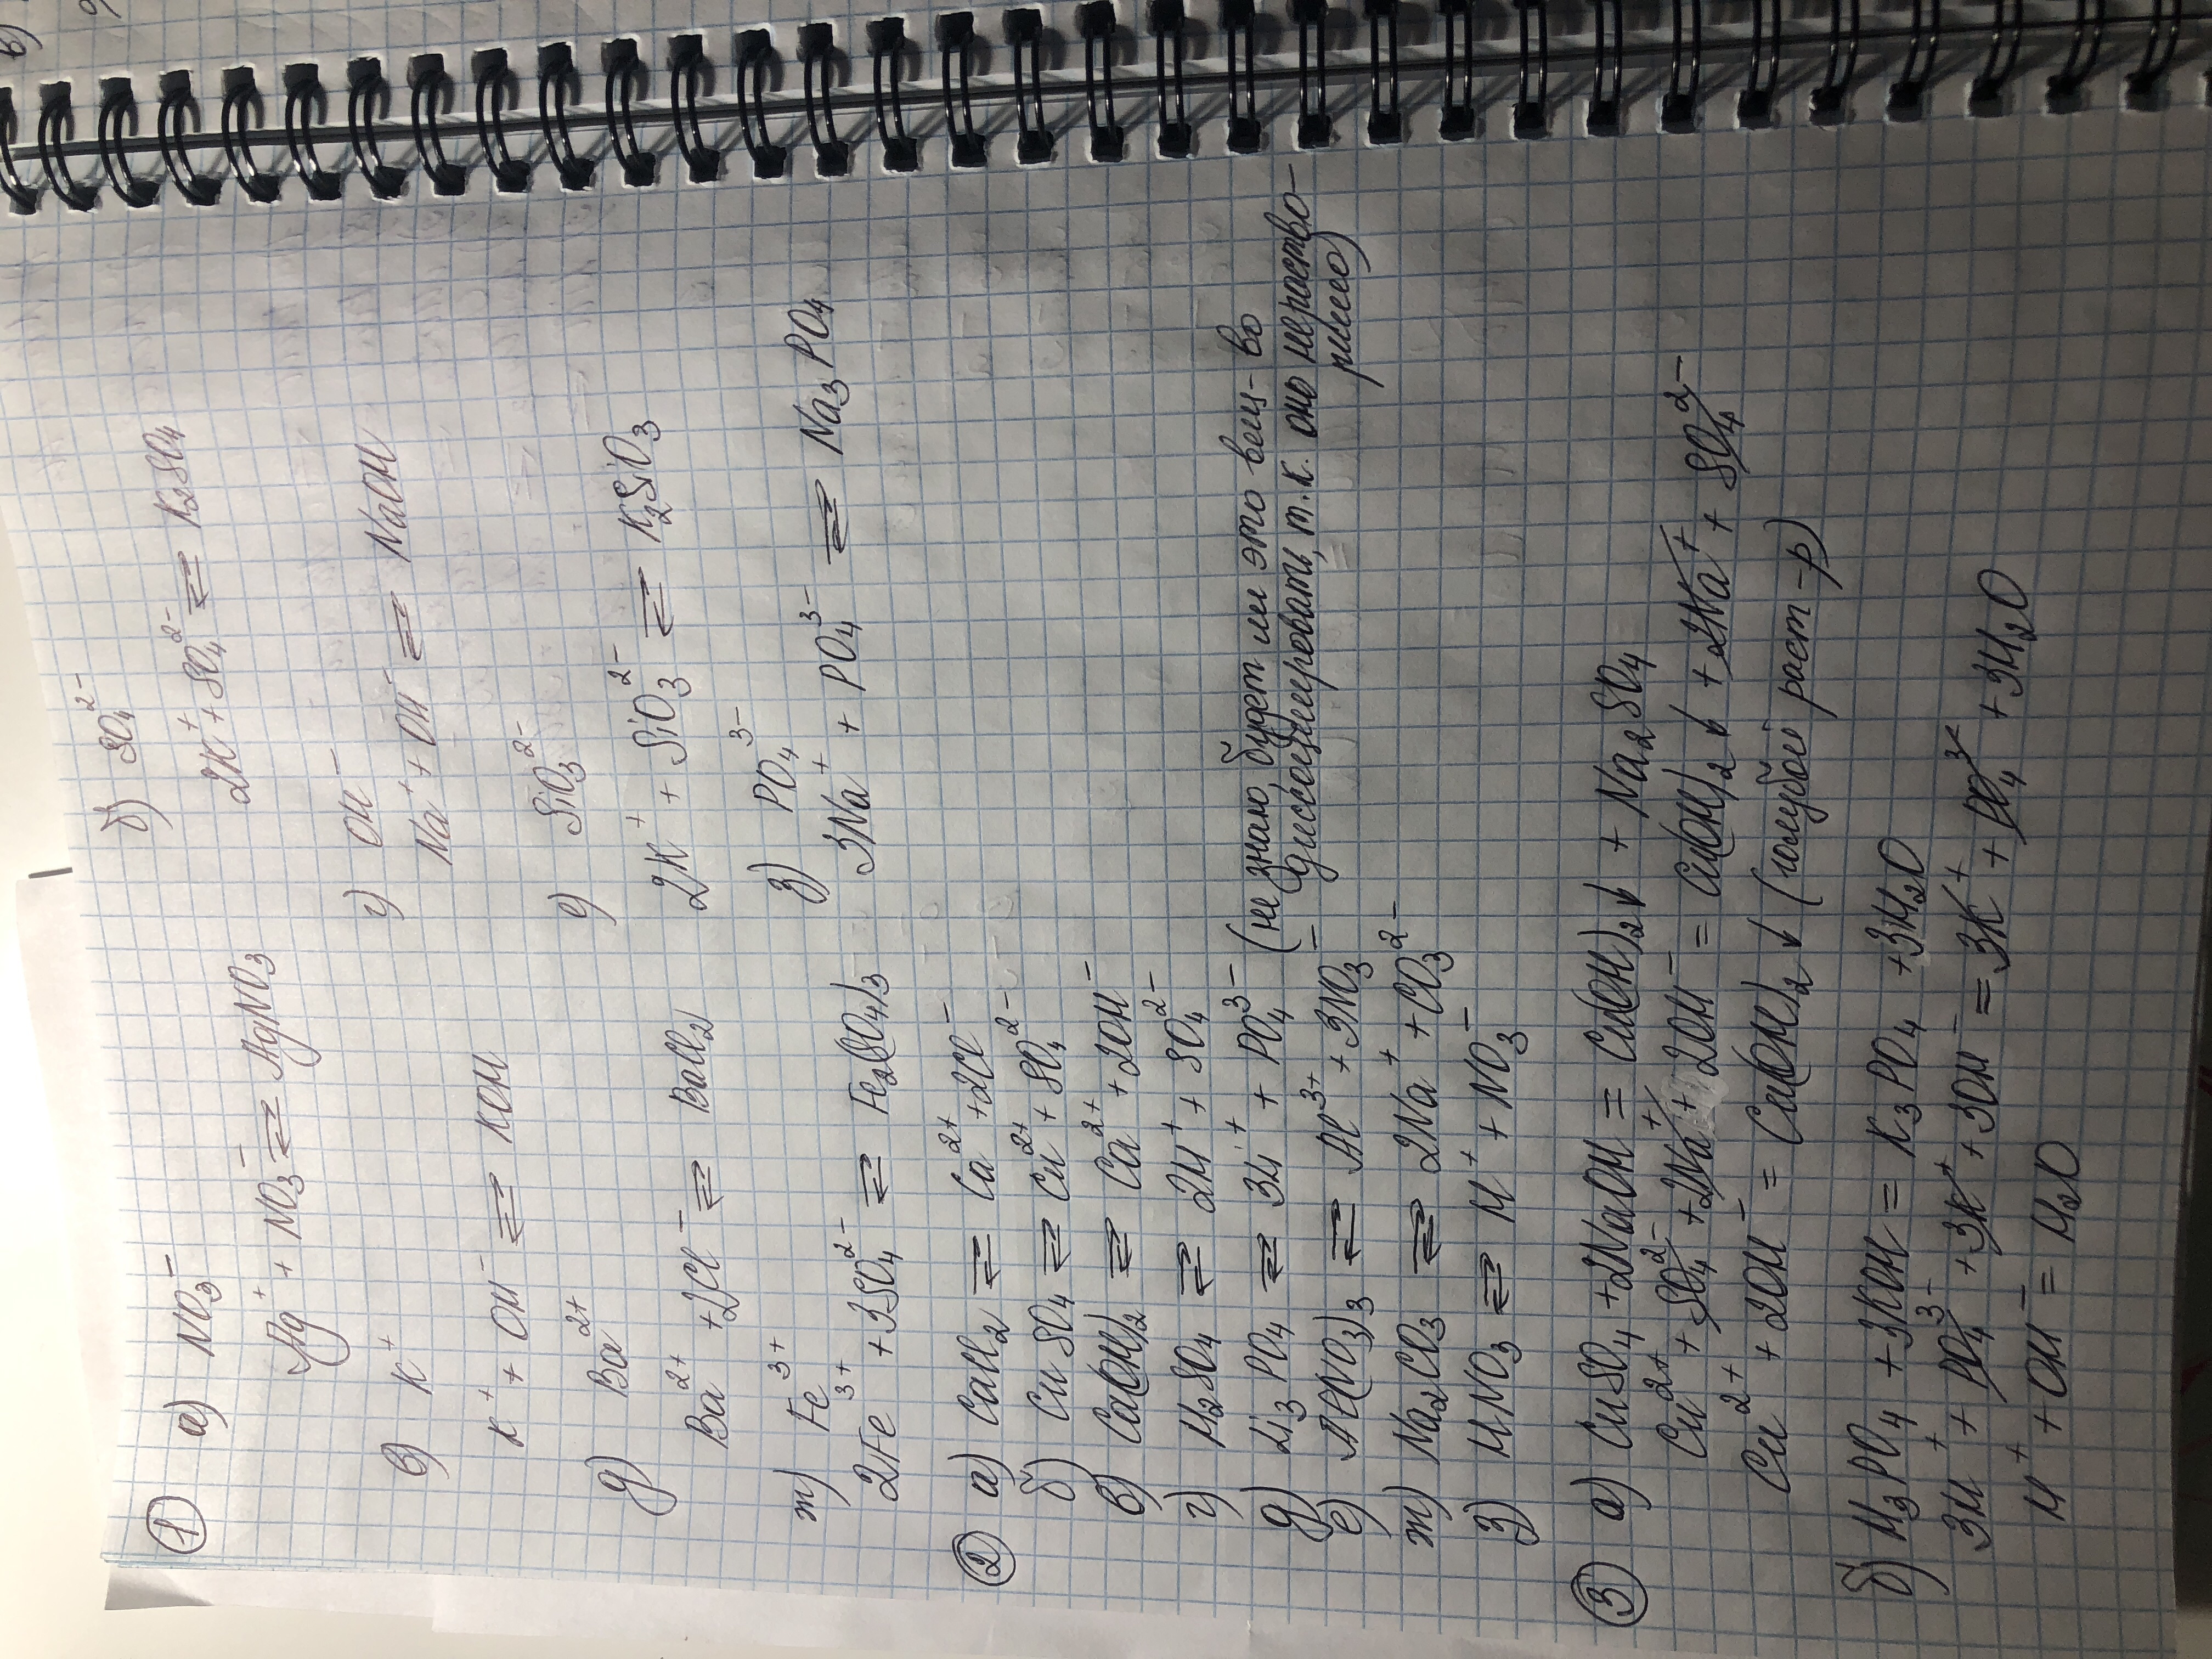 ① а) NO₃⁻ б) SO₄²⁻
Ag⁺ + NO₃⁻ ⇌ AgNO₃ 2K⁺ + SO₄²⁻ ⇌ K₂SO₄
в) K⁺ г) OH⁻
K⁺ + OH⁻ ⇌ KOH Na⁺ + OH⁻ ⇌ NaOH
д) Ba²⁺ е) SiO₃²⁻
Ba²⁺ + 2Cl⁻ ⇌ BaCl₂ 2K⁺ + SiO₃²⁻ ⇌ K₂SiO₃
ж) Fe³⁺ з) PO₄³⁻
2Fe³⁺ + 3SO₄²⁻ ⇌ Fe₂(SO₄)₃ 3Na⁺ + PO₄³⁻ ⇌ Na₃PO₄
② а) CaCl₂ ⇌ Ca²⁺ + 2Cl⁻
б) CuSO₄ ⇌ Cu²⁺ + SO₄²⁻
в) Ca(OH)₂ ⇌ Ca²⁺ + 2OH⁻
г) H₂SO₄ ⇌ 2H⁺ + SO₄²⁻
д) Li₃PO₄ ⇌ 3Li⁺ + PO₄³⁻ (не знаю, будет ли это вещ-во
диссоциировать, т.к. оно нераство-
римо)
е) Al(NO₃)₃ ⇌ Al³⁺ + 3NO₃⁻
ж) Na₂CO₃ ⇌ 2Na⁺ + CO₃²⁻
з) HNO₃ ⇌ H⁺ + NO₃⁻
③ а) CuSO₄ + 2NaOH = Cu(OH)₂↓ + Na₂SO₄
Cu²⁺ + SO₄²⁻ + 2Na⁺ + 2OH⁻ = Cu(OH)₂↓ + 2Na⁺ + SO₄²⁻
Cu²⁺ + 2OH⁻ = Cu(OH)₂↓ (голубой раст-р)
б) H₃PO₄ + 3KOH = K₃PO₄ + 3H₂O
3H⁺ + PO₄³⁻ + 3K⁺ + 3OH⁻ = 3K⁺ + PO₄³⁻ + 3H₂O
H⁺ + OH⁻ = H₂O
в)